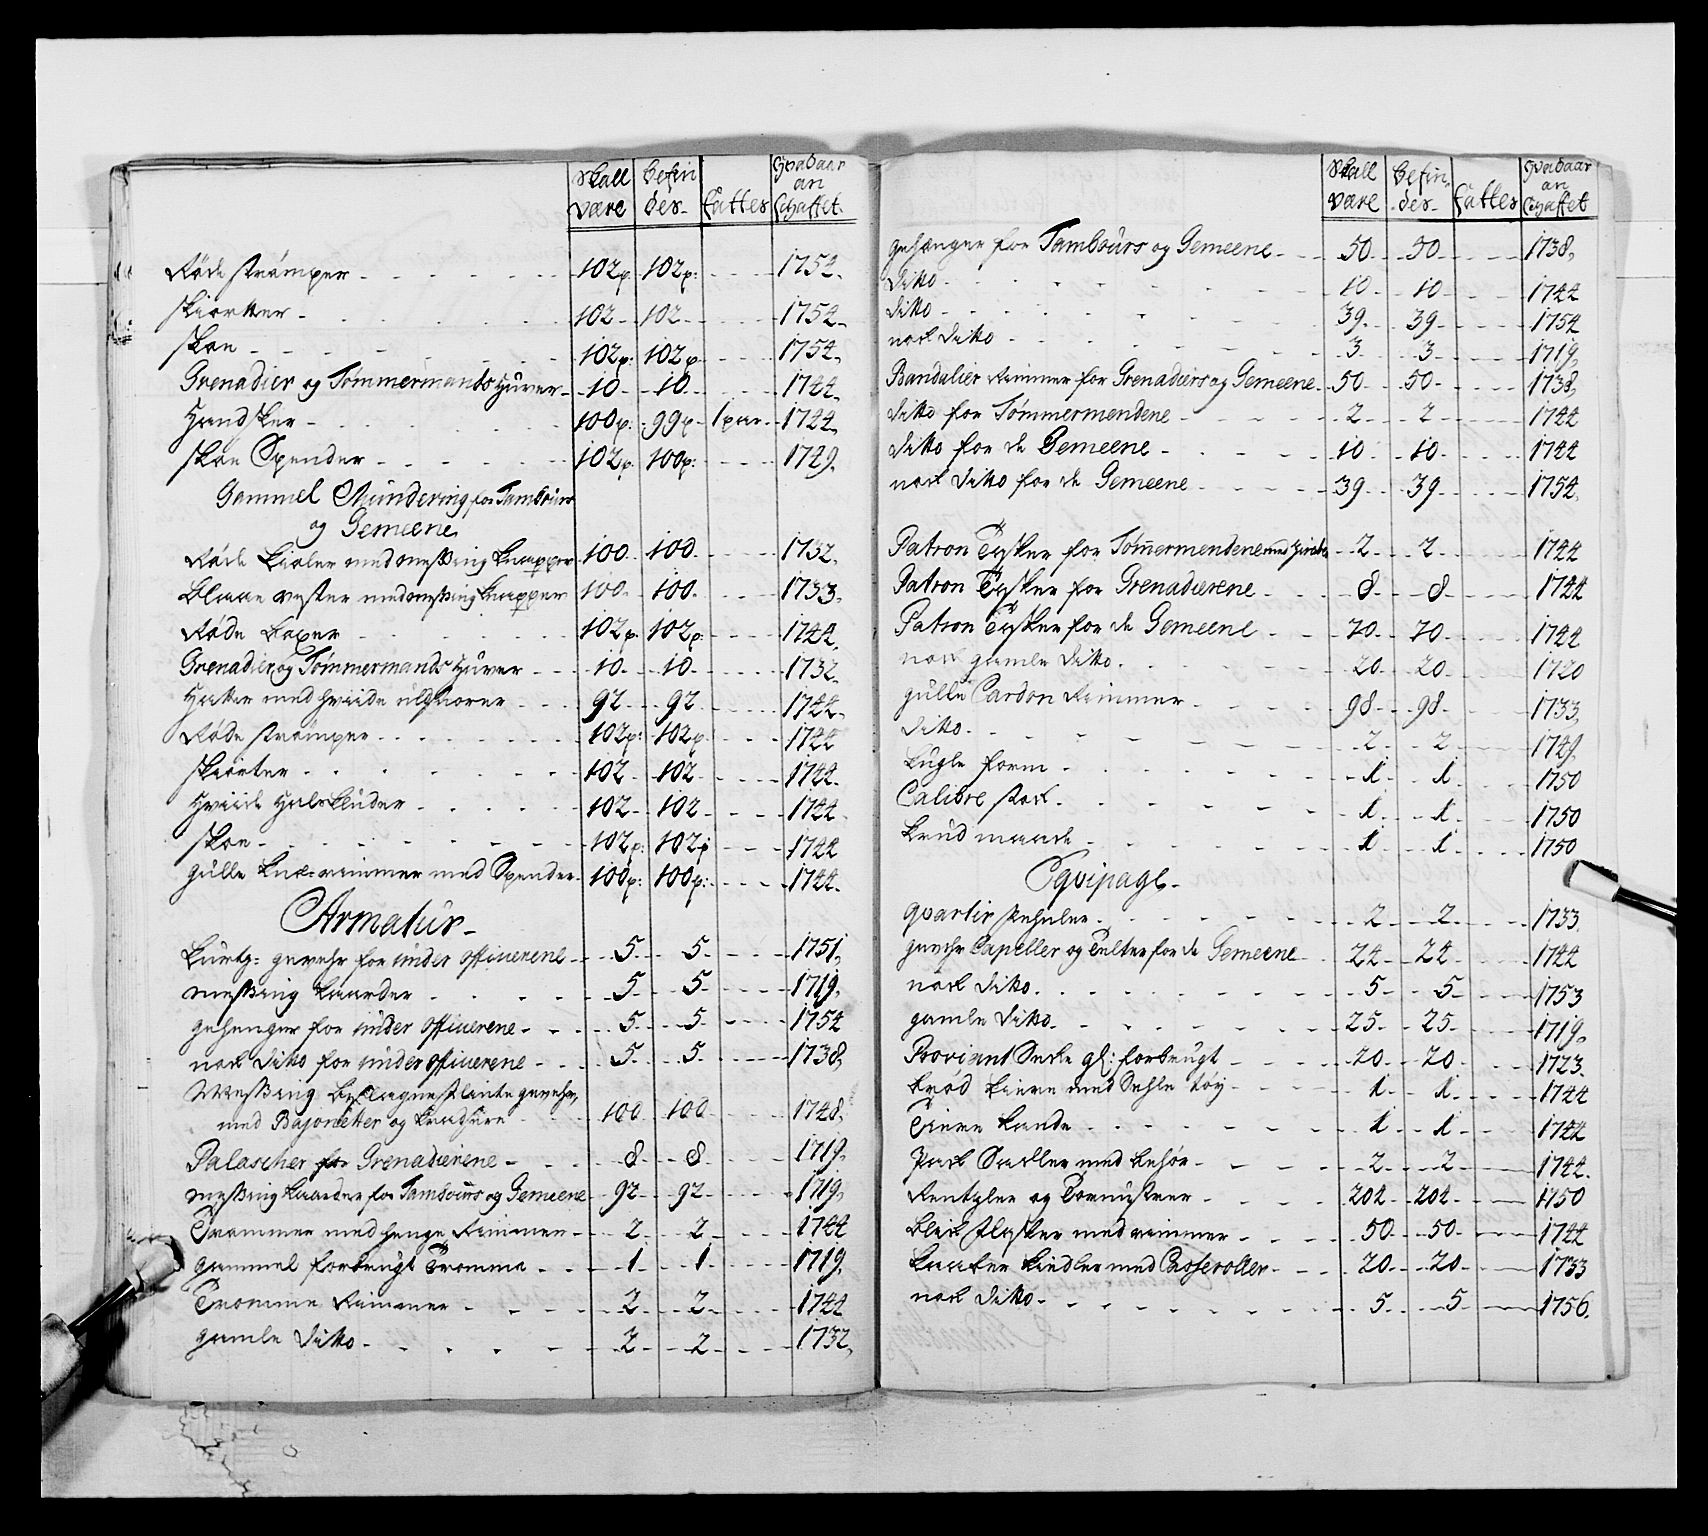 skall være | befindes | fattes | hvad aar anschaffet
Røde strømper - 102p: 102p: - 1754
skiorter - 102 - 102 - 1754
skoe - 102p: 102p: - 1754
Grenadier og Tømmermands Huver - 10 - 10 - 1744
Handsker - 100p: 99p - 1 par - 1744
skoe Spender - 102p: 100p: - 1749
Gammel Mundering for Tambours
og Gemeene
Røde kioler med messing knapper 100 - 100 - 1732
Blaae vester med messing knapper 100 - 100 - 1733
Røde boxer - 102p: 102p: - 1744
Grenadier og Tømmermands Huver - 10 - 10 - 1732
Hatter med hviide uldsnorer - 92 - 92 - 1744
Røde strømper - 102p: 102p - 1744
skiorter - 102 - 102 - 1744
Hviide Halskluder - 102 - 102 - 1744
skoe - 102p: 102p - 1744
gulle knæ-remmer med Spender - 100p: 100p: - 1744
Armatur
kurtz-gevehr for under officerene - 5 - 5 - 1751
messing kaarder - 5 - 5 - 1719
gehenger for under officerene - 5 - 5 - 1754
noch dito for under officerene - 5 - 5 - 1738
Messing beslagne flinte gevehr,
med Bajonetter og 100 - 100 - 1748
Palascher for Grenadierene - 8 - 8 - 1719
messing kaarder for Tambours og Gemeene 92 - 92 - 1719
Trommer med henge Remmer - 2 - 2 - 1744
gammel forbrugt Tromme - 1 - 1 - 1719
Tromme Remmer - 2 - 2 - 1744
gamle dito - 2 - 2 - 1732
skall være | befindes | fattes | hvad aar anschaffet
gehenger for Tambours og Gemeene - 50 - 50 - 1738
dito - 10 - 10 - 1744
dito - 39 - 39 - 1754
noch dito - 3 - 3 - 1719
Bandalier Remmer for Grenadiers og Gemeene - 50 - 50 - 1738
dito for Tømmermendene - 2 - 2 - 1744
dito for de Gemeene - 10 - 10 - 1744
noch dito for de Gemeene - 39 - 39 - 1754
Patron Tasker for Tømmermendene med - 2 - 2 - 1744
Patron Tasker for Grenadierene - 8 - 8 - 1744
Patron Tasker for de Gemeene - 70 - 70 - 1744
noch gamle dito - 20 - 20 - 1720
gulle Cardon Remmer - 98 - 98 - 1733
dito - 2 - 2 - 1749
kugle form - 1 - 1 - 1750
Calibre stock - 1 - 1 - 1750
krud maade - 1 - 1 - 1750
Eqvipage
qvarteer - 2 - 2 - 1733
gevehr Capeller og Telter for de Gemeene - 24 - 24 - 1744
noch dito - 5 - 5 - 1753
gamle dito - 25 - 25 - 1719
Proviant Secke gl: forbrugt - 20 - 20 - 1723
brød med Sehle tøy - 1 - 1 - 1744
kande - 1 - 1 - 1744
Pack Sadler med behør - 2 - 2 - 1744
Rentzler og Tornystrer - 202 - 202 - 1750
bleck flasker med remmer - 50 - 50 - 1744
kaaber kiedler med Casseroller - 20 - 20 - 1733
noch dito - 5 - 5 - 1756